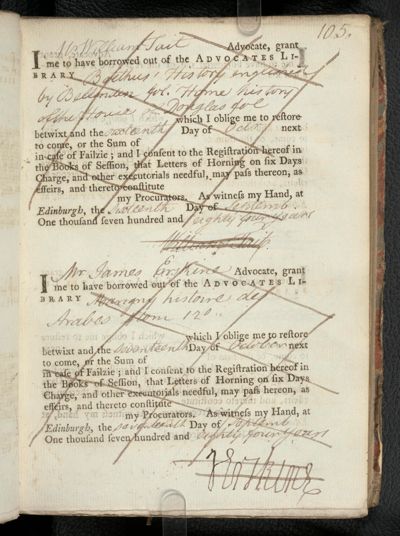 105.
I Mr William Tait Advocate, grant
me to have borrowed out of the ADVOCATES LI-
BRARY Boethius' History englished
by Ballenden fol. Home history
of the House Douglas fol
which I oblige me to restore
betwixt and the sixteenth Day of Octor next
to come, or the Sum of
in case of Failzie; and I consent to the Registration hereof in
the Books of Session, that Letters of Horning on six Days
Charge, and other executorials needful, may pass thereon, as
effeirs, and thereto constitute
my Procurators. As witness my Hand, at
Edinburgh, the sixteenth Day of Septemb.
One thousand seven hundred and eighty four years
William Tait.
I Mr James Erskine Advocate, grant
me to have borrowed out of the ADVOCATES LI-
BRARY Marigny histoire des
Arabes tom 12o.
which I oblige me to restore
betwixt and the seventeenth Day of October next
to come, or the Sum of
in case of Failzie; and I consent to the Registration hereof in
the Books of Session, that Letters of Horning on six Days
Charge, and other executorials needful, may pass hereon, as
effeirs, and thereto constitute
my Procurators. As witness my Hand, at
Edinburgh, the seventeenth Day of Septemb
One thousand seven hundred and eighty four years
Erskine